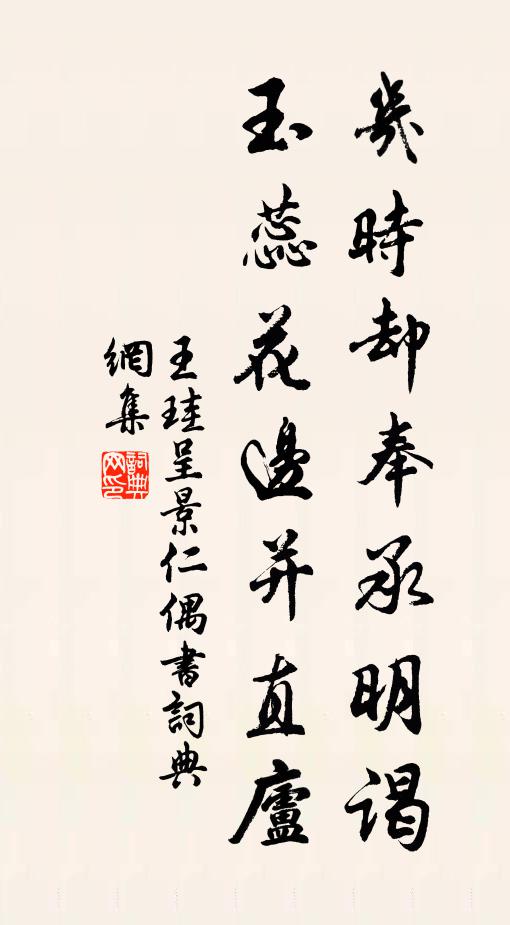 幾時却奉承明謁
玉蕊花邊并直廬
王珪呈景仁偶書詞典
網集
詞典
网印